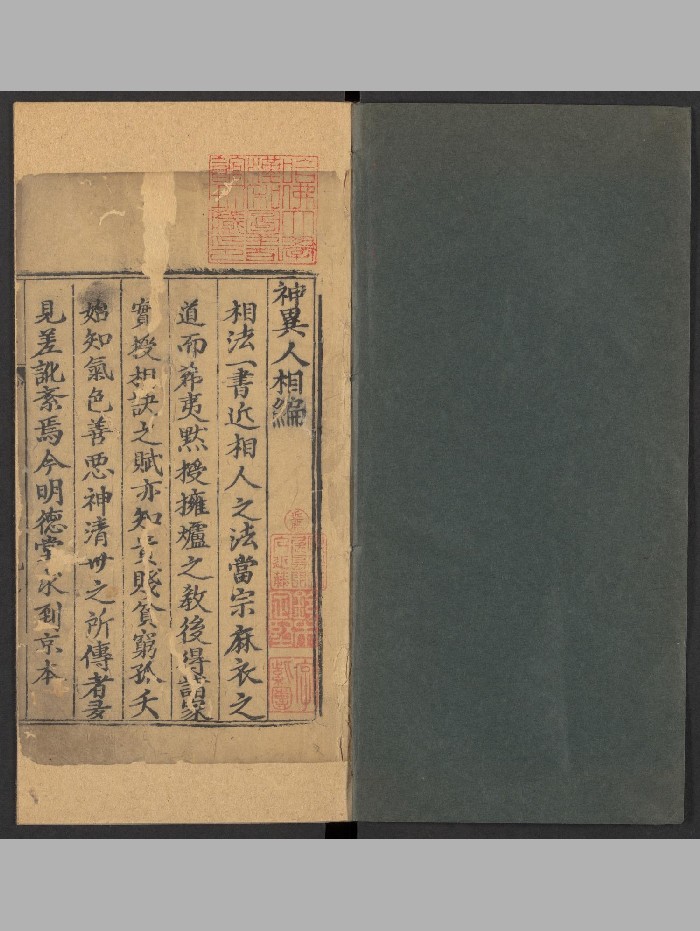 神異人相編
相法一書近相人之法當宗麻衣之
道而希夷黙授擁爐之教後得諸家
實授相訣之賦亦知貴賤貧窮孤夭
始知氣色善惡神清世之所傳者多
見差訛紊焉今明德堂求到京本